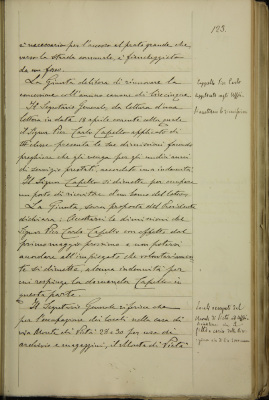 123.
si necessario per l'accesso al prato grande che
verso la strada comunale, è fiancheggiato
da un fosso.
La Giunta delibera di rinnovare la
concessione coll'annuo canone di lire cinque.
Il Segretario Generale, dà lettura d'una
lettera in data 18 aprile corrente colla quale
il Signor Pier Carlo Capello applicato di
3ª classe presenta le sue dimissioni facendo
preghiera che gli venga per gli undici anni
di servizio prestati, accordata una indennità.
Il Signor Capello si dimette per occupare
un posto di
La Giunta, sovra proposta del Presidente
dichiara: Accettarsi le dimissioni del
Signor Pier Carlo Capello con effetto dal
primo maggio prossimo e non potersi
accordare all'impiegato che volontariamen-
te si dimette, alcuna indennità per
cui respinge la domanda Capello in
questa parte.
Il Segretario Generale riferisce che
per l'occupazione dei locali nella casa di
via Monte di Pietà 28 e 30 per uso di
archivio e magazzini, il Monte di Pietà
Capello Pier Carlo
applicato agli Uffici.
Accettazione di dimissioni
Locali occupati dal